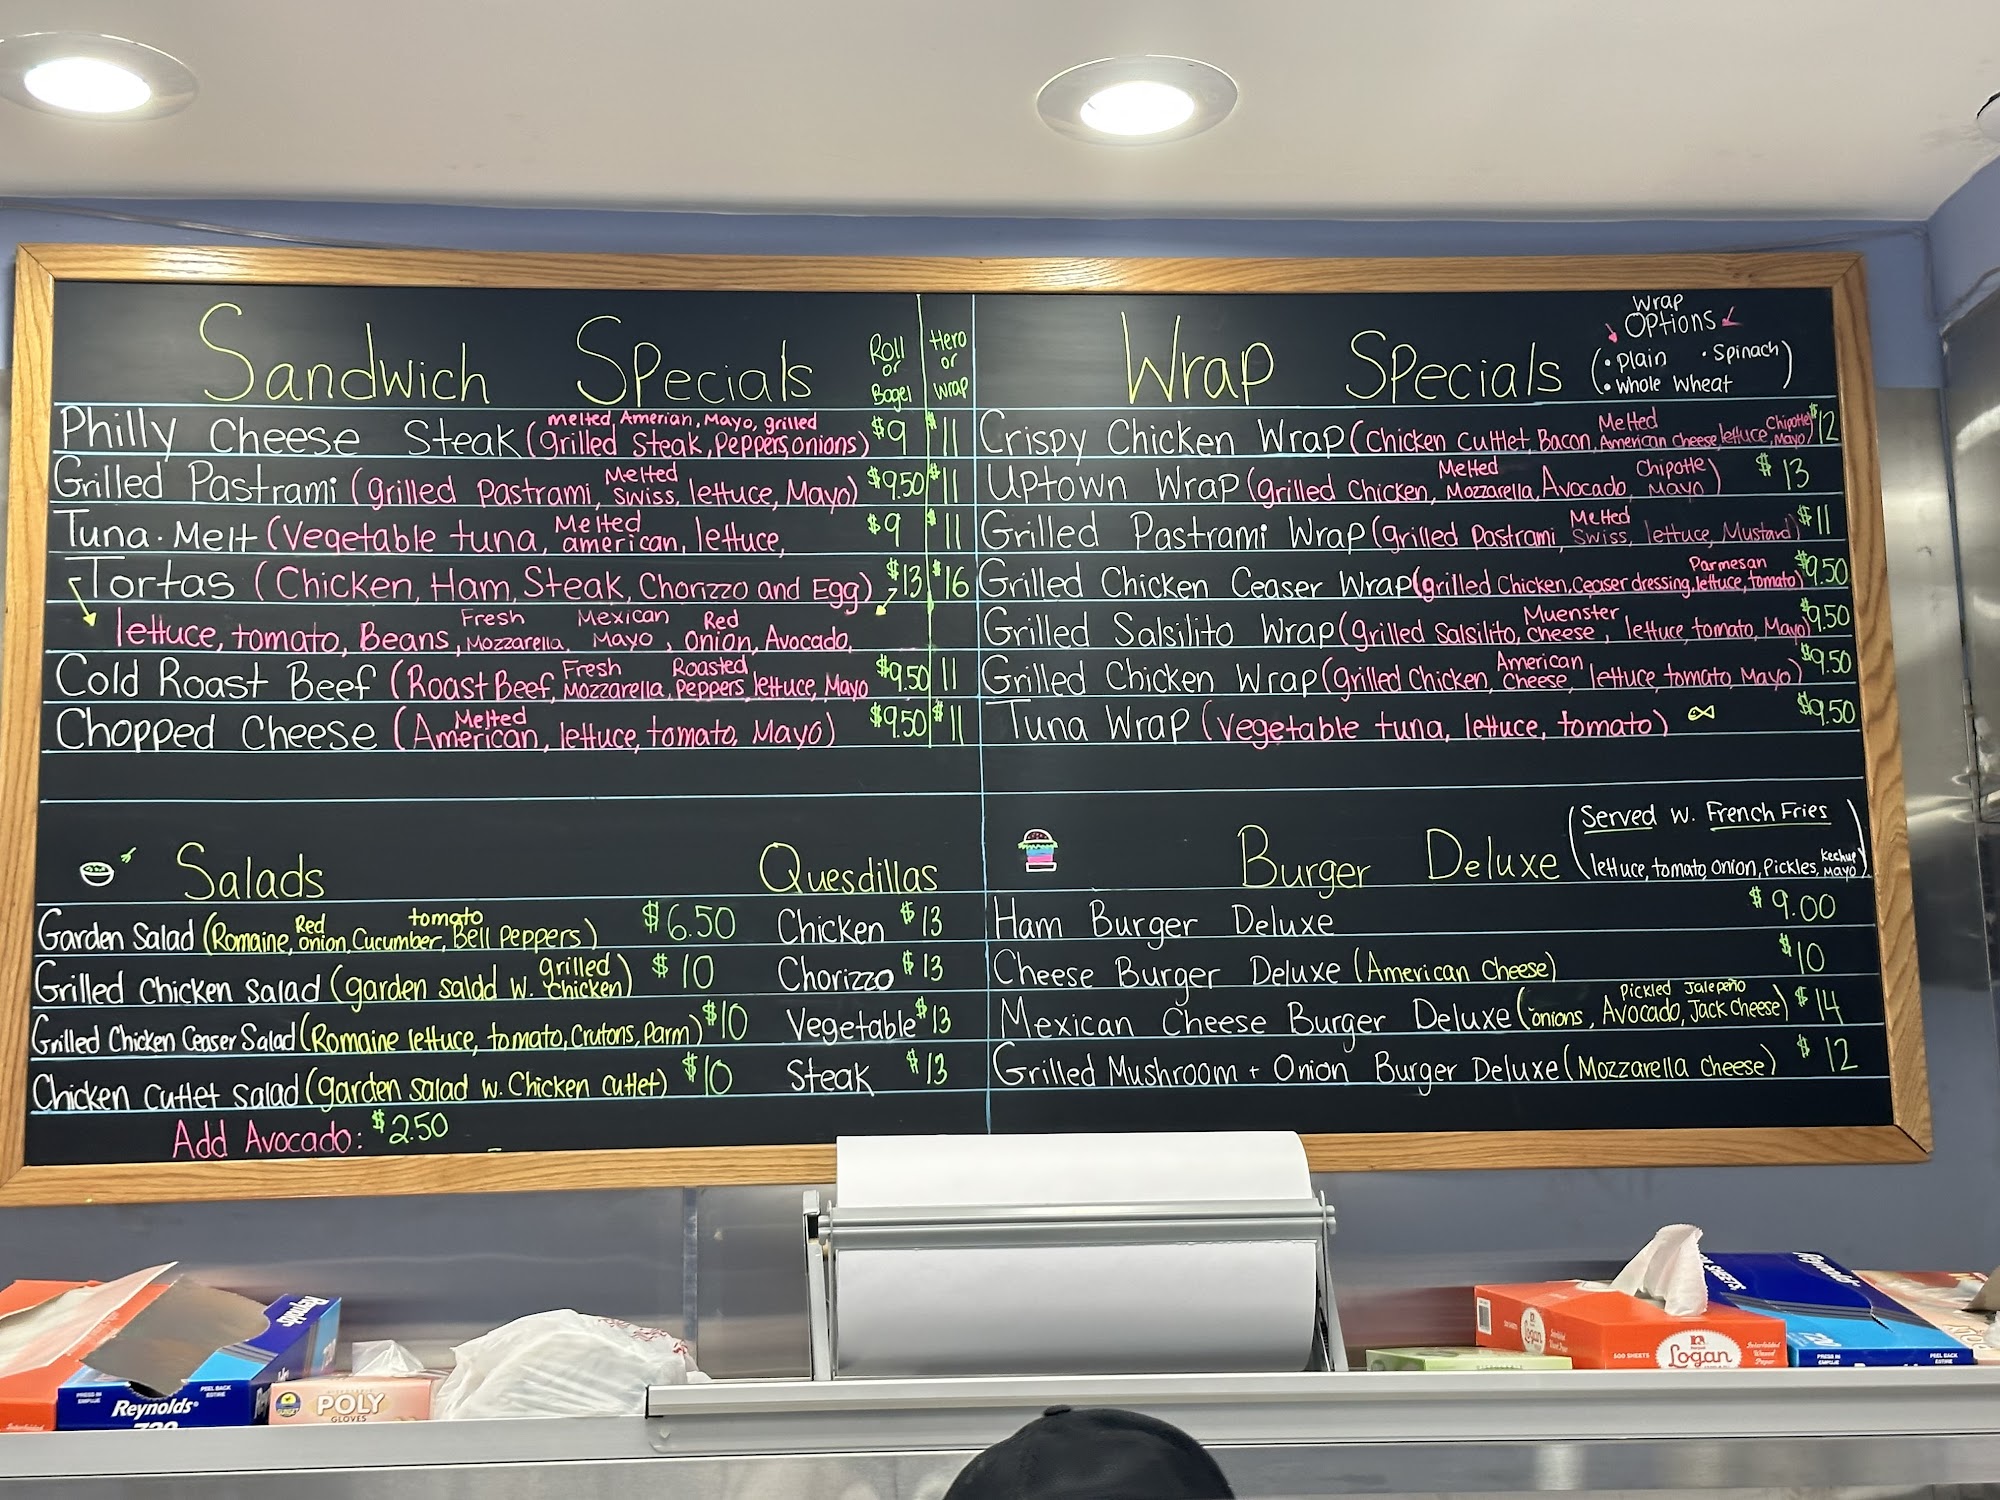 Sandwich Specials
Roll or Bagel
Hero or Wrap
Philly Cheese Steak (grilled Steak, Peppers, onions) melted, Amerian, Mayo, grilled $9 $11
Grilled Pastrami (grilled Pastrami, Melted Swiss, lettuce, Mayo) $9.50 $11
Tuna. Melt (Vegetable tuna, Melted american, lettuce, $9 $11
Tortas (Chicken, Ham, Steak, Chorizzo and Egg) $13 $16
lettuce, tomato, Beans, Fresh Mozzarella, Mexican Mayo, Red Onion, Avocado,
Cold Roast Beef (Roast Beef, Fresh Mozzarella, Roasted Peppers, lettuce, Mayo $9.50 11
Chopped Cheese (Melted American, lettuce, tomato, Mayo) $9.50 $11
Wrap Specials
Wrap Options
(• Plain • Spinach
• Whole Wheat)
Crispy Chicken Wrap (Chicken Cuttlet, Bacon, Melted American cheese, lettuce, Chipotle Mayo) $12
Uptown Wrap (grilled Chicken, Melted Mozzarella, Avocado, Chipotle Mayo) $13
Grilled Pastrami Wrap (grilled Pastrami, Melted Swiss, lettuce, Mustard) $11
Grilled Chicken Ceaser Wrap (grilled Chicken, Ceaser dressing, Parmesan lettuce, tomato) $9.50
Grilled Salsilito Wrap (grilled Salsilito, Muenster Cheese, lettuce, tomato, Mayo) $9.50
Grilled Chicken Wrap (grilled Chicken, American Cheese, lettuce, tomato, Mayo) $9.50
Tuna Wrap (Vegetable tuna, lettuce, tomato) $9.50
Salads
Garden Salad (Romaine, Red onion, Cucumber, tomato Bell Peppers) $6.50
Grilled Chicken Salad (garden salad w. grilled Chicken) $10
Grilled Chicken Ceaser Salad (Romaine lettuce, tomato, Crutons, Parm) $10
Chicken Cuttet Salad (garden salad w. Chicken cutlet) $10
Add Avocado: $2.50
Quesdillas
Chicken $13
Chorizzo $13
Vegetable $13
Steak $13
Burger Deluxe
(Served w. French Fries
lettuce, tomato, onion, Pickles, Kechup Mayo)
Ham Burger Deluxe $9.00
Cheese Burger Deluxe (American Cheese) $10
Mexican Cheese Burger Deluxe (onions, Pickled Jalepeño Avocado, Jack Cheese) $14
Grilled Mushroom + Onion Burger Deluxe (Mozzarella Cheese) $12
Reynolds
PRESS IN
PEEL BACK
Reynolds
POLY
GLOVES
Logan
600 SHEETS
Interfolded
Waxed
Paper
Logan
SHEETS
Reynolds
PRESS IN
PEEL BACK